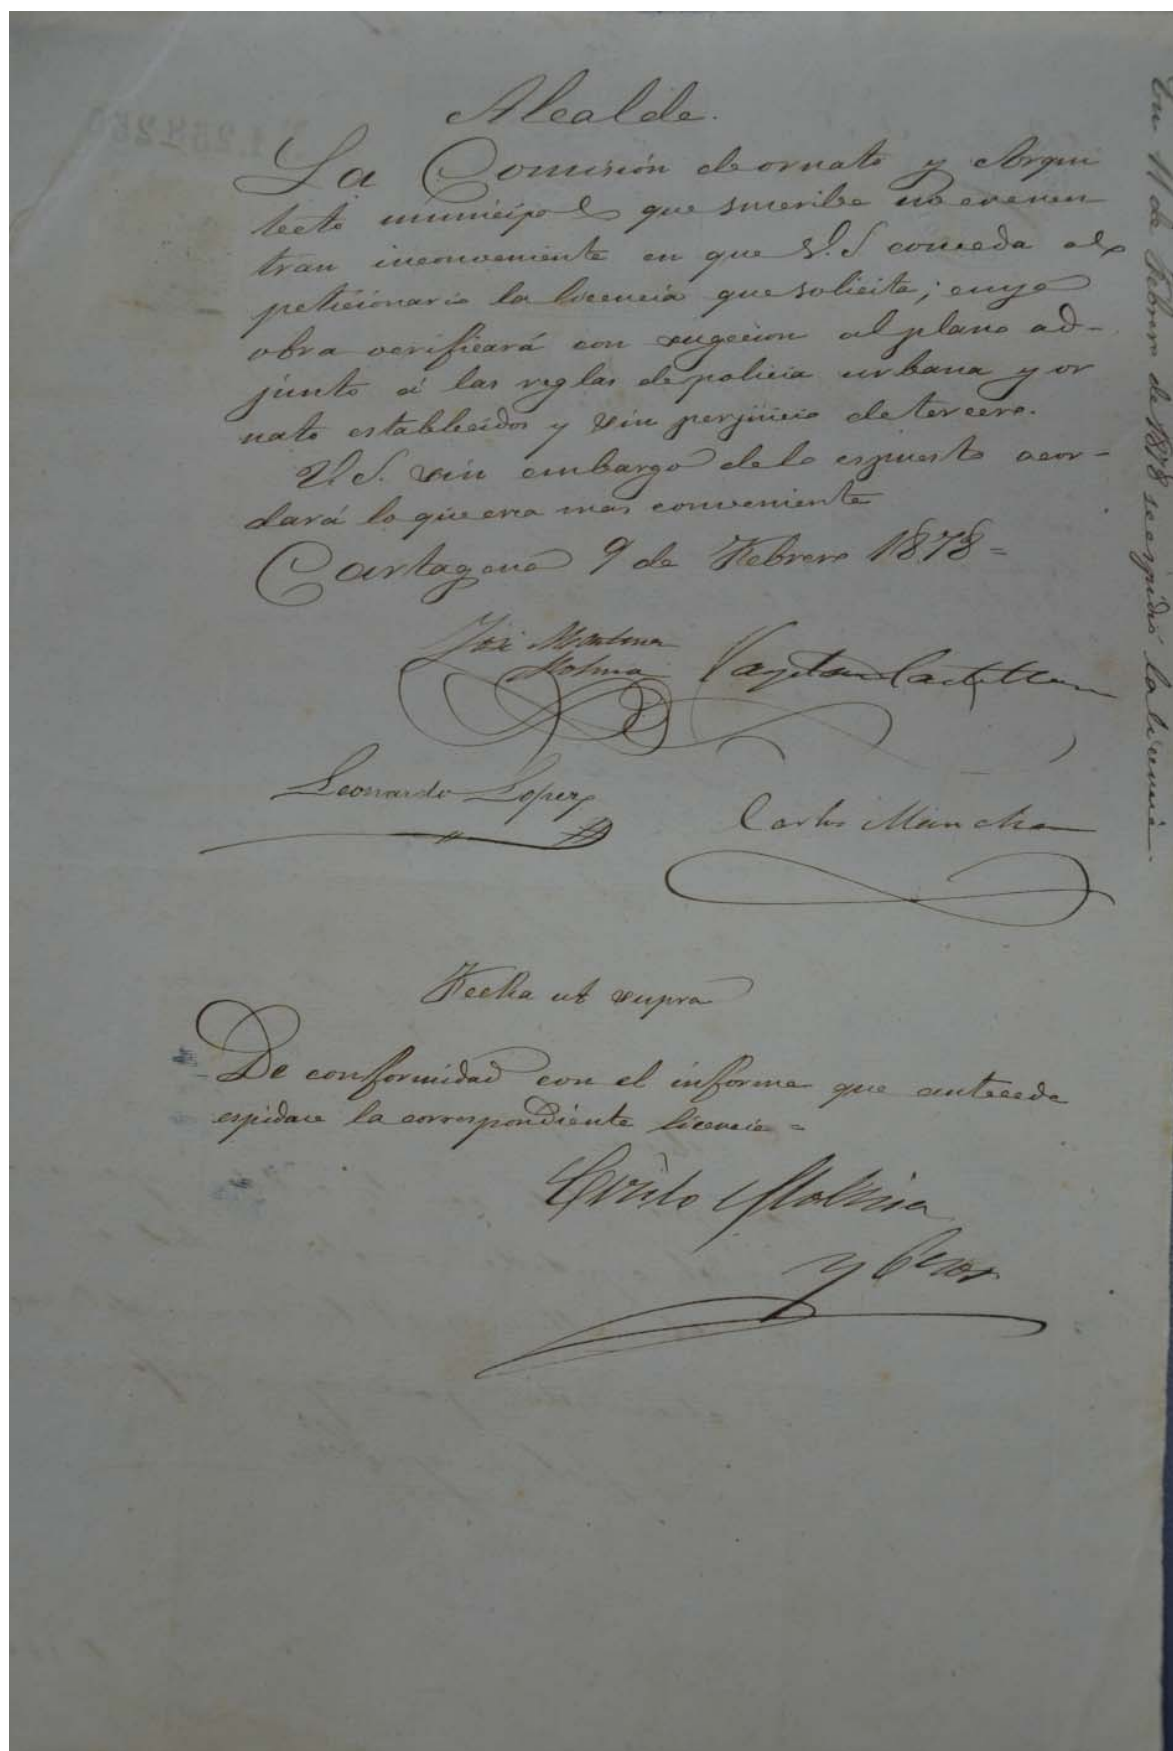 Alcalde.
La Comisión de ornato y Arqui
tecto municipal que suscribe no encuen
tran inconveniente en que V.S conceda al
peticionario la licencia que solicita; cuya
obra verificará con sugecion al plano ad-
junto á las reglas de policia urbana y or
nato establecidos y sin perjuicio de tercero.
V.S. sin embargo de lo espuesto acor-
dará lo que crea mas conveniente
Cartagena 9 de Febrero 1878=
José
Molina
Leonardo Lopez
Carlos Mancha
Fecha ut supra
De conformidad con el informe que antecede
espidase la correspondiente licencia=
Cirilo Molina
y Cros
En 11 de Febrero de 1878 se espidió la licencia.